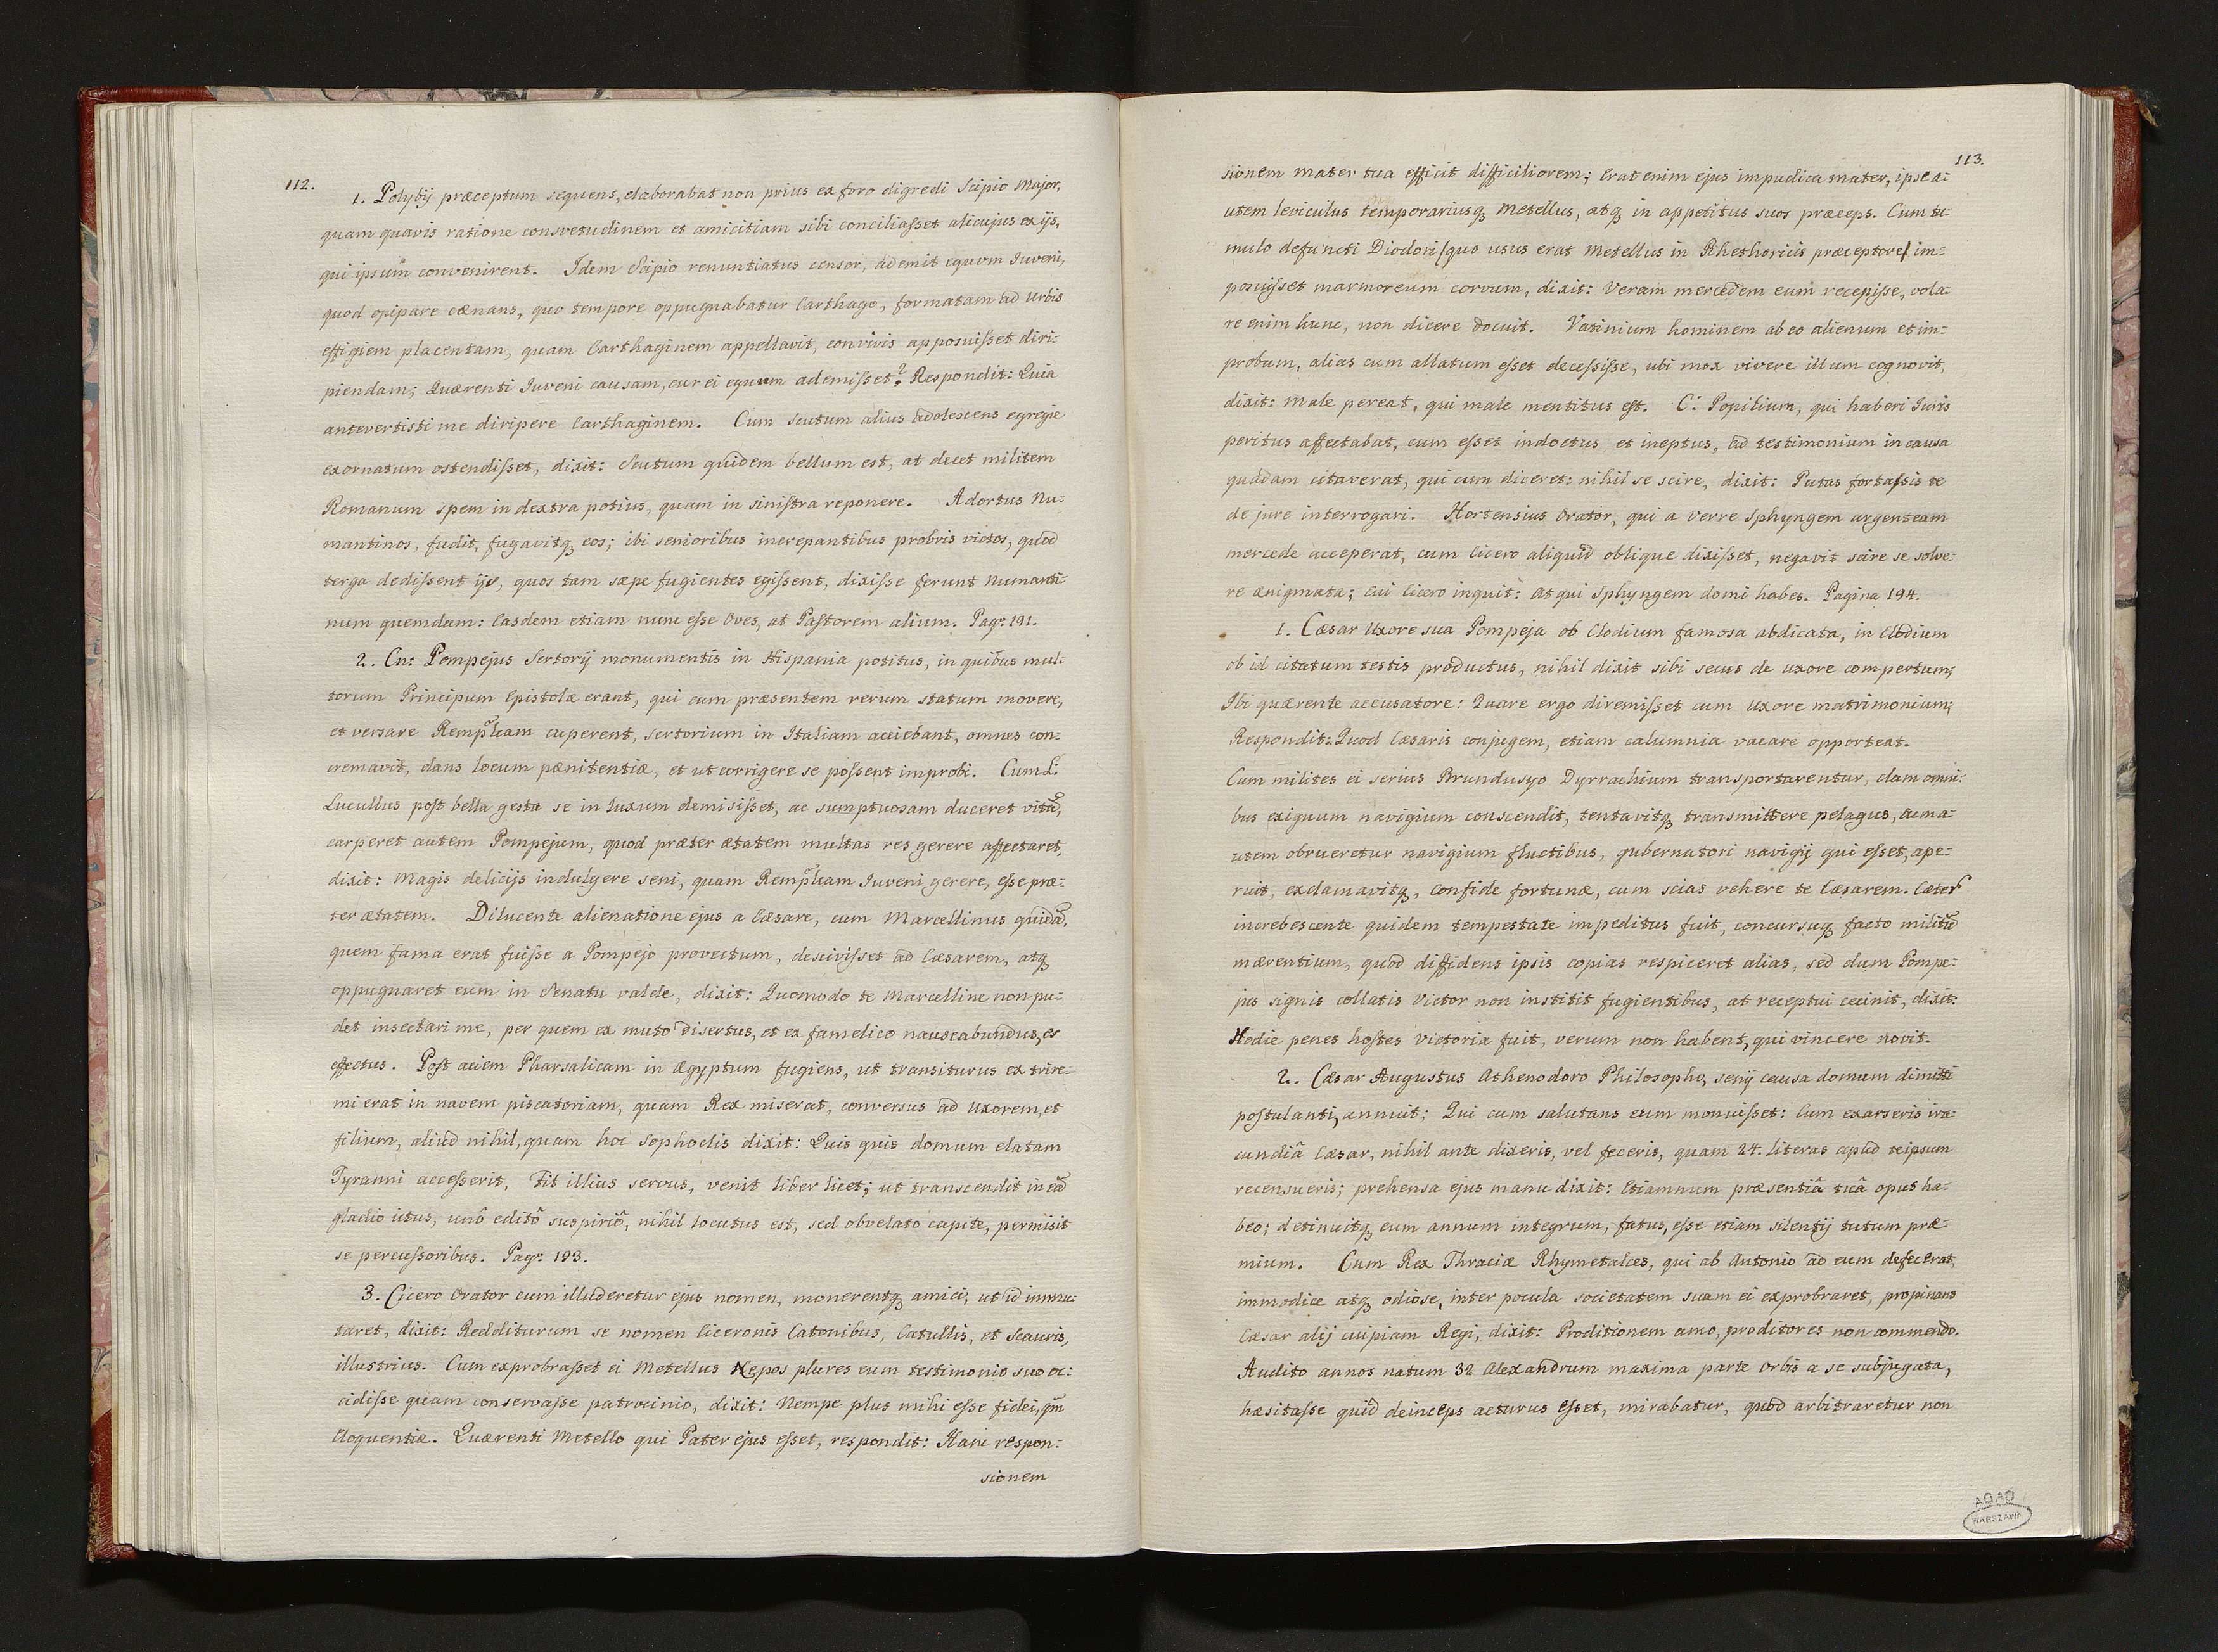 112.
1. Polybij præceptum sequens, elaborabat non prius ex foro digredi Scipio Major,
quam quavis ratione consvetudinem et amicitiam sibi conciliasset alicujus ex ijs,
qui ipsum convenirent. Idem Scipio renuntiatus censor, ademit equum Iuveni,
quod opipare cænans, quo tempore oppugnabatur Carthago, formatam ad Urbis
effigiem placentam, quam Carthaginem appellavit, convivis apposuisset diri-
piendam; Quærenti Iuveni causam, cur ei equum ademisset? Respondit: Quia
antevertisti me diripere Carthaginem. Cum scutum alius adolescens egregie
exornatum ostendisset, dixit: Scutum quidem bellum est, at decet militem
Romanum spem in dextra potius, quam in sinistra reponere. Adortus Nu-
mantinos, fudit, fugavitq, eos; ibi senioribus increpantibus probris victos, quod
terga dedissent ijs, quos tam sæpe fugientes egissent, dixisse ferunt Numanti-
num quemdam: Easdem etiam nunc esse Oves, at Pastorem alium. Pag: 191.
2. Cn: Pompejus Sertorij monumentis in Hispania potitus, in quibus mul-
torum Principum Epistolæ erant, qui cum præsentem rerum statum movere,
et versare Remplcam cuperent, Sertorium in Italiam acciebant, omnes con-
cremavit, dans locum pænitentiæ, et ut corrigere se possent improbi. Cum L:
Lucullus post bella gesta se in luxum demisisset, ac sumptuosam duceret vitã,
carperet autem Pompejum, quod præter ætatem multas res gerere affectaret,
dixit: Magis delicijs indulgere seni, quam Remplcam Iuveni gerere, esse præ-
ter ætatem. Dilucente alienatione ejus a Cæsare, cum Marcellinus quidã,
quem fama erat fuisse a Pompejo provectum, descivisset ad Cæsarem, atq
oppugnaret eum in Senatu valde, dixit: Quomodo te Marcelline non pu-
det insectari me, per quem ex muto disertus, et ex famelico nauseabundus, es
effectus. Post aciem Pharsalicam in Ægyptum fugiens, ut transiturus ex trire-
mi erat in navem piscatoriam, quam Rex miserat, conversus ad Uxorem, et
filium, aliud nihil, quam hoc Sophoclis dixit: Quis quis domum elatam
Tyranni accesserit, Fit illius servus, venit liber licet; ut transcendit in eã
gladio ictus, unô editô suspiriô, nihil locutus est, sed obvelato capite, permisit
se percussoribus. Pag: 193.
3. Cicero Orator cum illuderetur ejus nomen, monerentq amici, ut id immu-
taret, dixit: Redditurum se nomen Ciceronis Catonibus, Catullis, et Scauris,
illustrius. Cum exprobrasset ei Metellus Nepos plures eum testimonio suo oc-
cidisse quam conservasse patrocinio, dixit: Nempe plus mihi esse fidei, qm
Eloquentiæ. Quærenti Metello qui Pater ejus esset, respondit: Hanc respon-
sionem
113.
sionem mater tua efficit difficiliorem; Erat enim ejus impudica mater, ipse a-
utem leviculus temporariusq, Metellus, atq, in appetitus suos præceps. Cum tu-
mulo defuncti Diodori /quo usus erat Metellus in Rhethoricis præceptore/ im-
posuisset marmoreum corvum, dixit: Veram mercedem eum recepisse, vola-
re enim hunc, non dicere docuit. Vatinium hominem ab eo alienum et im-
probum, alias cum allatum esset decessisse, ubi mox vivere illum cognovit,
dixit: Male pereat, qui male mentitus est. C: Popilium, qui haberi Iuris
peritus affectabat, cum esset indoctus et ineptus, ad testimonium in causa
quadam citaverat, qui cum diceret: nihil se scire, dixit: Putas fortassis te
de jure interrogari. Hortensius Orator, qui a Verre Sphyngem argenteam
mercede acceperat, cum Cicero aliquid oblique dixisset, negavit scire se solve-
re ænigmata; Cui Cicero inquit: At qui Sphyngem domi habes. Pagina 194.
1. Cæsar Uxore sua Pompeja ob Clodium famosa abdicata, in Clodium
ob id citatum testis productus, nihil dixit sibi secus de uxore compertum;
Ibi quærente accusatore: Quare ergo diremisset cum Uxore matrimonium;
Respondit: Quod Cæsaris conjugem, etiam calumnia vacare opporteat.
Cum milites ei serius Brundusyo Dyrrachium transportarentur, clam omni-
bus exiguum navigium conscendit, tentavitq, transmittere pelagus, cum a-
utem obrueretur navigium fluctibus, gubernatori navigij qui esset, ape-
ruit, exclamavitq, confide fortunæ, cum scias vehere te Cæsarem. Cæter
increbescente quidem tempestate impeditus fuit, concursuq, facto militũ
mærentium, quod diffidens ipsis copias respiceret alias, sed dum Pompe-
jus signis collatis Victor non institit fugientibus, at receptui cecinit, dixit:
Hodie penes hostes Victoria fuit, verum non habent, qui vincere novit.
2. Cæsar Augustus Athenodoro Philosopho, senij causa domum dimitti
postulanti, annuit; Qui cum salutans eum monuisset: Cum exarseris ira-
cundiâ Cæsar, nihil ante dixeris, vel feceris, quam 24. literas apud teipsum
recensueris; prehensa ejus manu dixit: Etiamnum præsentiâ tuâ opus ha-
beo; detinuitq, eum annum integrum, fatus, esse etiam silentij tutum præ-
mium. Cum Rex Thraciæ Rhymetalces, qui ab Antonio ad eum defecerat,
immodice atq, odiose, inter pocula societatem suam ei exprobraret, propinans
Cæsar alij cuipiam Regi, dixit: Proditionem amo, proditores non commendo.
Audito annos natum 32 Alexandrum maxima parte Orbis a se subjugata,
hæsitasse quid deinceps acturus esset, mirabatur, quod arbitraretur non
AGAD
WARSZAWA